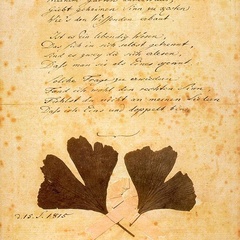 Meinem Garten anvertraut
Giebt geheimen Sinn zu kosten
Wie's den Wissenden erbaut
Ist es Ein lebendig Wesen,
Das sich in sich selbst getrennt,
Sind es zwey die sich erlesen,
Dass man sie als Eines kennt.
Solche Frage zu erwiedern
Fand ich wohl den rechten Sinn
Fühlst du nicht an meinen Liedern
Dass ich Eins und doppelt bin
d. 15. S. 1815